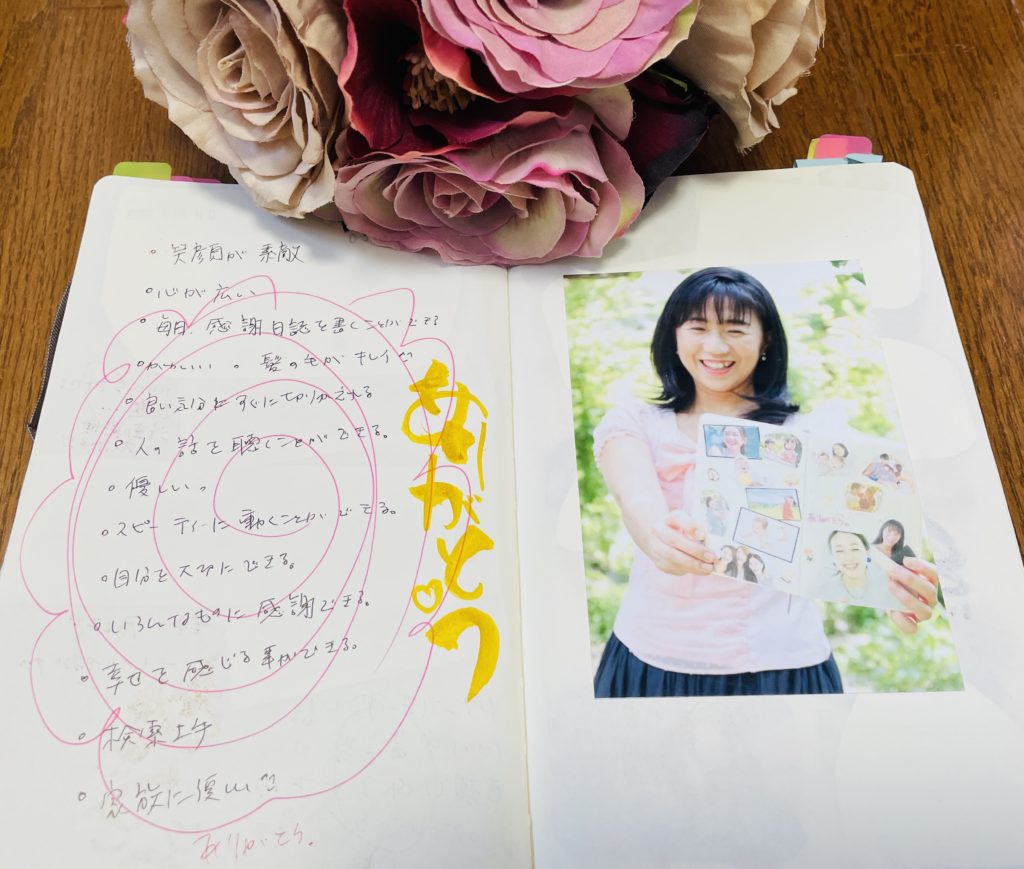 。笑顔が素敵
。心が広い
。毎日、感謝日誌を書くことができる
。かわいい 。髪の毛がキレイ
。良い気分にすぐに切りかえれる
。人の話を聴くことができる。
。優しい。
。スピーディーに動くことができる。
。自分を大切にできる。
。いろんなものに感謝できる。
。幸せを感じる事ができる。
。検索上手
。家族に優しい
ありがとう。
ありがとう
ありがとう。